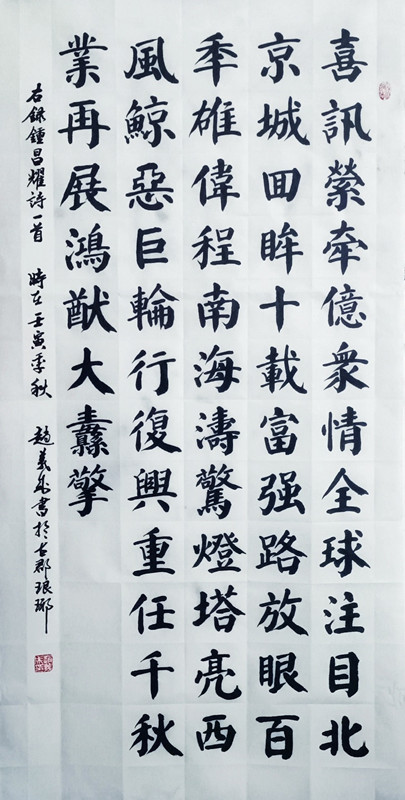 喜訊縈牽億衆情全球注目北
京城囬眸十載富强路放眼百
年雄偉程南海濤驚燈塔亮西
風鯨惡巨輪行復興重任千秋
業再展鴻猷大纛擎
右錄鍾昌耀詩一首 時在壬寅季秋 趙義書於古郡琅琊